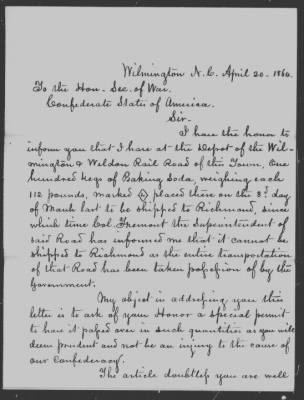 Wilmington N.C. April 20. 1864.
To the Hon. Sec. of War.
Confederate State of America.
Sir.
I have the honor to
inform you that I have at the Depot of the Wil-
mington & Weldon Rail Road of this Town, One
hundred kegs of Baking Soda, weighing each
112 pounds, marked placed there on the 8th day
of March last to be shipped to Richmond, since
which time Col. Fremont the Superintendent of
said Road has informed me that it cannot be
shipped to Richmond as the entire transportation
of that Road has been taken possession of by the
Government.
My object in addressing you this
letter is to ask of your Honor a special permit
to have it passed over in such quantities as you will
deem prudent and not be an injury to the cause of
our Confederacy.
The article doubtless you are well